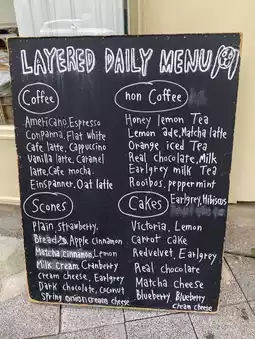 LAYERED DAILY MENU
Coffee
Americano, Espresso
Conpanna, Flat white
Cafe latte, Cappuccino
Vanilla latte, Caramel
latte, Cafe mocha.
Einspanner, Oat latte
non Coffee
Honey lemon Tea
Lemon ade, Matcha latte
Orange iced Tea
Real chocolate, Milk
Earlgrey milk Tea
Rooibos, peppermint
Earlgrey, Hibiscus
Scones
Plain strawberry,
Bread, Apple cinnamon
Matcha cinnamon, Lemon
Milk Cream Cranberry
cream cheese, Earlgrey
Dark chocolate, Coconut
Spring onion cream cheese
Cakes
Victoria, Lemon
Carrot cake
Redvelvet, Earlgrey
Real chocolate
Matcha cheese
Blueberry Blueberry
cream cheese